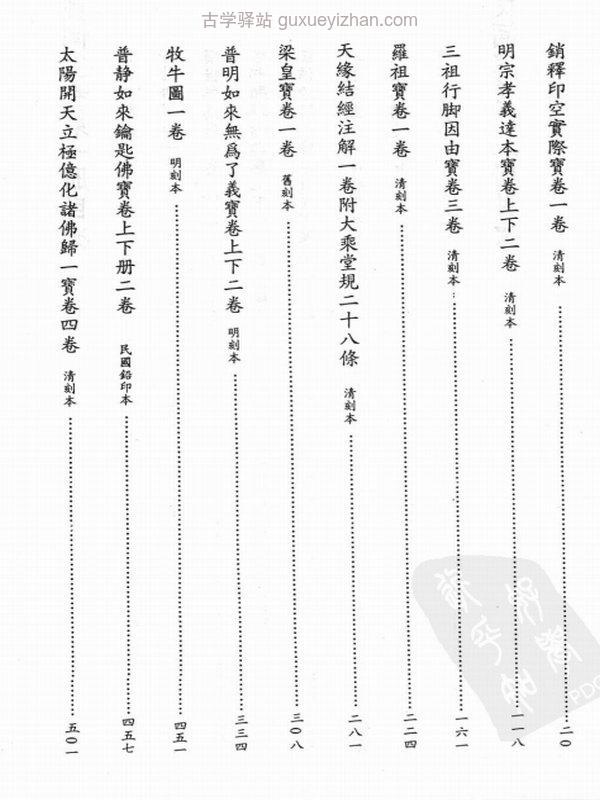 古学驿站 guxueyizhan.com
銷釋印空實際寶卷一卷 清刻本 二〇
明宗孝義達本寶卷上下二卷 清刻本 一一八
三祖行脚因由寶卷三卷 清刻本 一六一
羅祖寶卷一卷 清刻本 二二四
天緣結經注解一卷附大乘堂規二十八條 清刻本 二八一
梁皇寶卷一卷 舊刻本 三〇八
普明如來無爲了義寶卷上下二卷 明刻本 三三四
牧牛圖一卷 明刻本 四五一
普静如來鑰匙佛寶卷上下册二卷 民國鉛印本 四五七
太陽開天立極億化諸佛歸一寶卷四卷 清刻本 五〇一
PDG